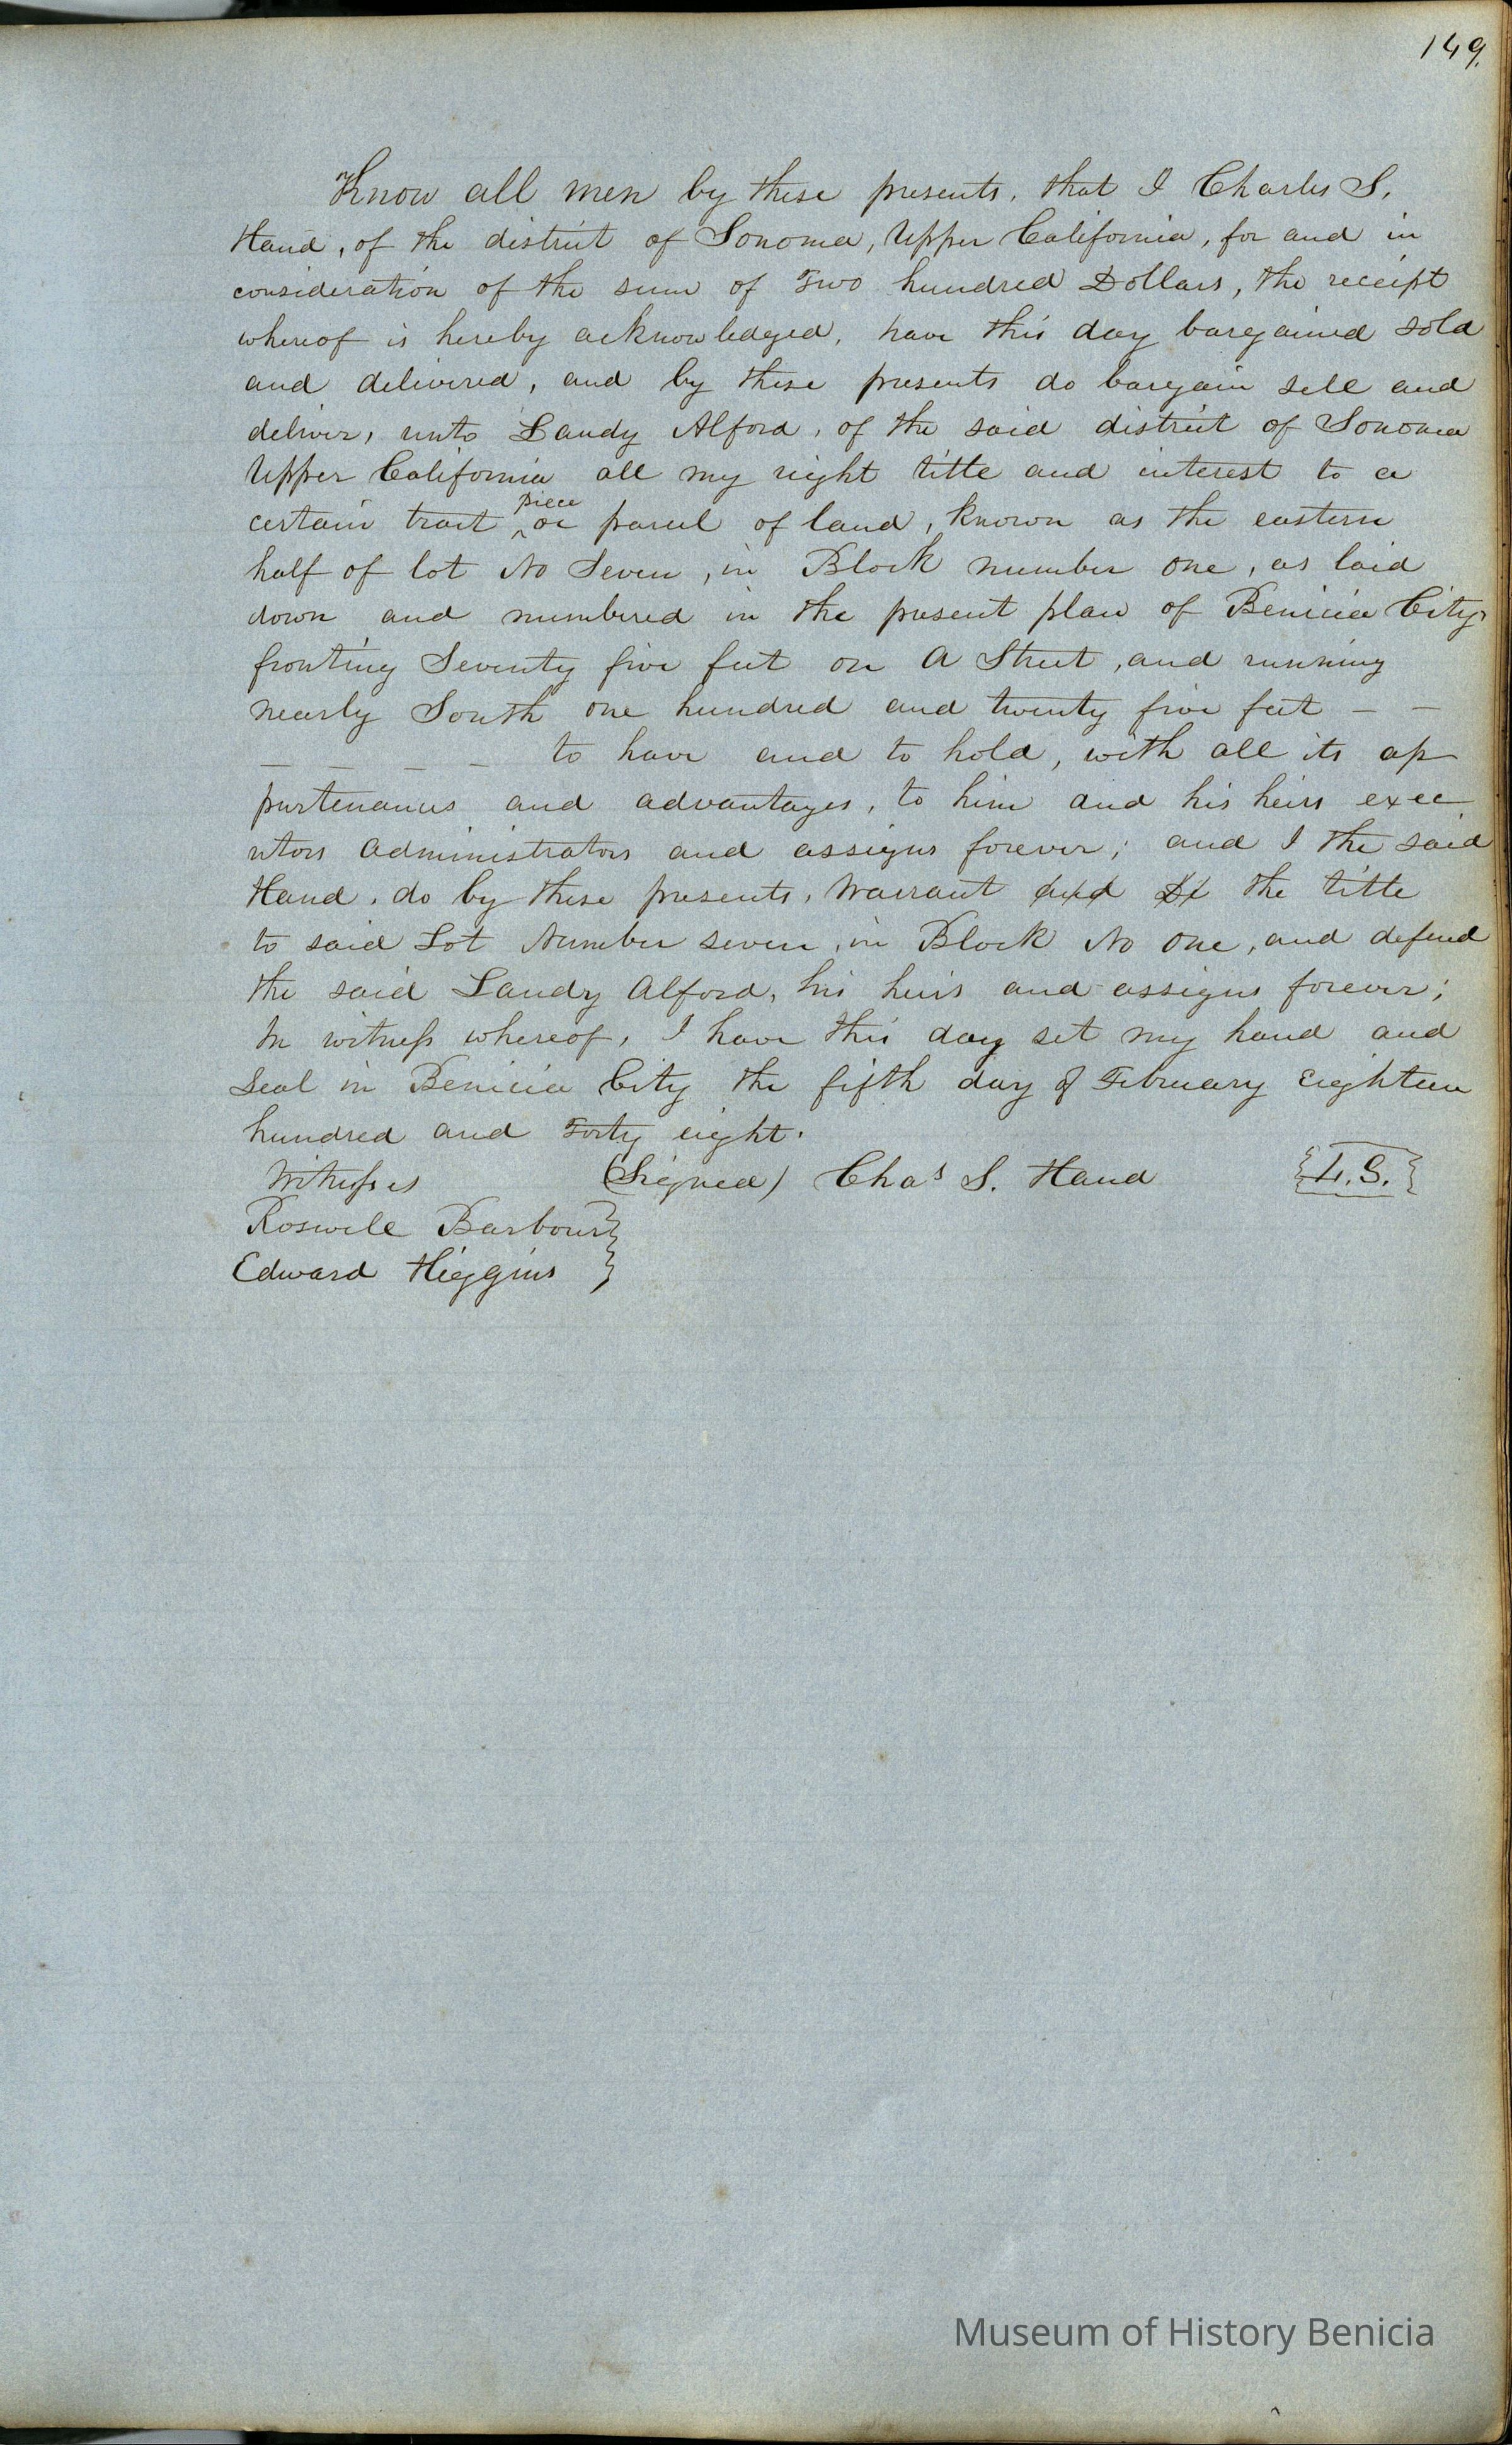 149.
Know all men by these presents, that I Charles S.
Hand, of the district of Sonoma, Upper California, for and in
consideration of the sum of Two hundred Dollars, the receipt
whereof is hereby acknowledged, have this day bargained sold
and delivered, and by these presents do bargain sell and
deliver, unto Landy Alford, of the said district of Sonoma
Upper California all my right title and interest to a
piece
certain tract ^ or parcel of land, known as the eastern
half of lot No Seven, in Block number one, as laid
down and numbered in the present plan of Benicia City,
fronting Seventy five feet on A Street, and running
nearly South one hundred and twenty five feet – –
– – – – to have and to hold, with all its ap
purtenances and advantages, to him and his heirs exec
utors administrators and assigns forever; and I the said
Hand, do by these presents, Warrant and the title
to said Lot Number seven, in Block No One, and defend
the said Landy Alford, his heirs and assigns forever;
In witness whereof, I have this day set my hand and
Seal in Benicia City the fifth day of February Eighteen
hundred and Forty eight.
Witnesses (Signed) Chas S. Hand {L.S.}
Roswell Barbour }
Edward Higgins }
Museum of History Benicia